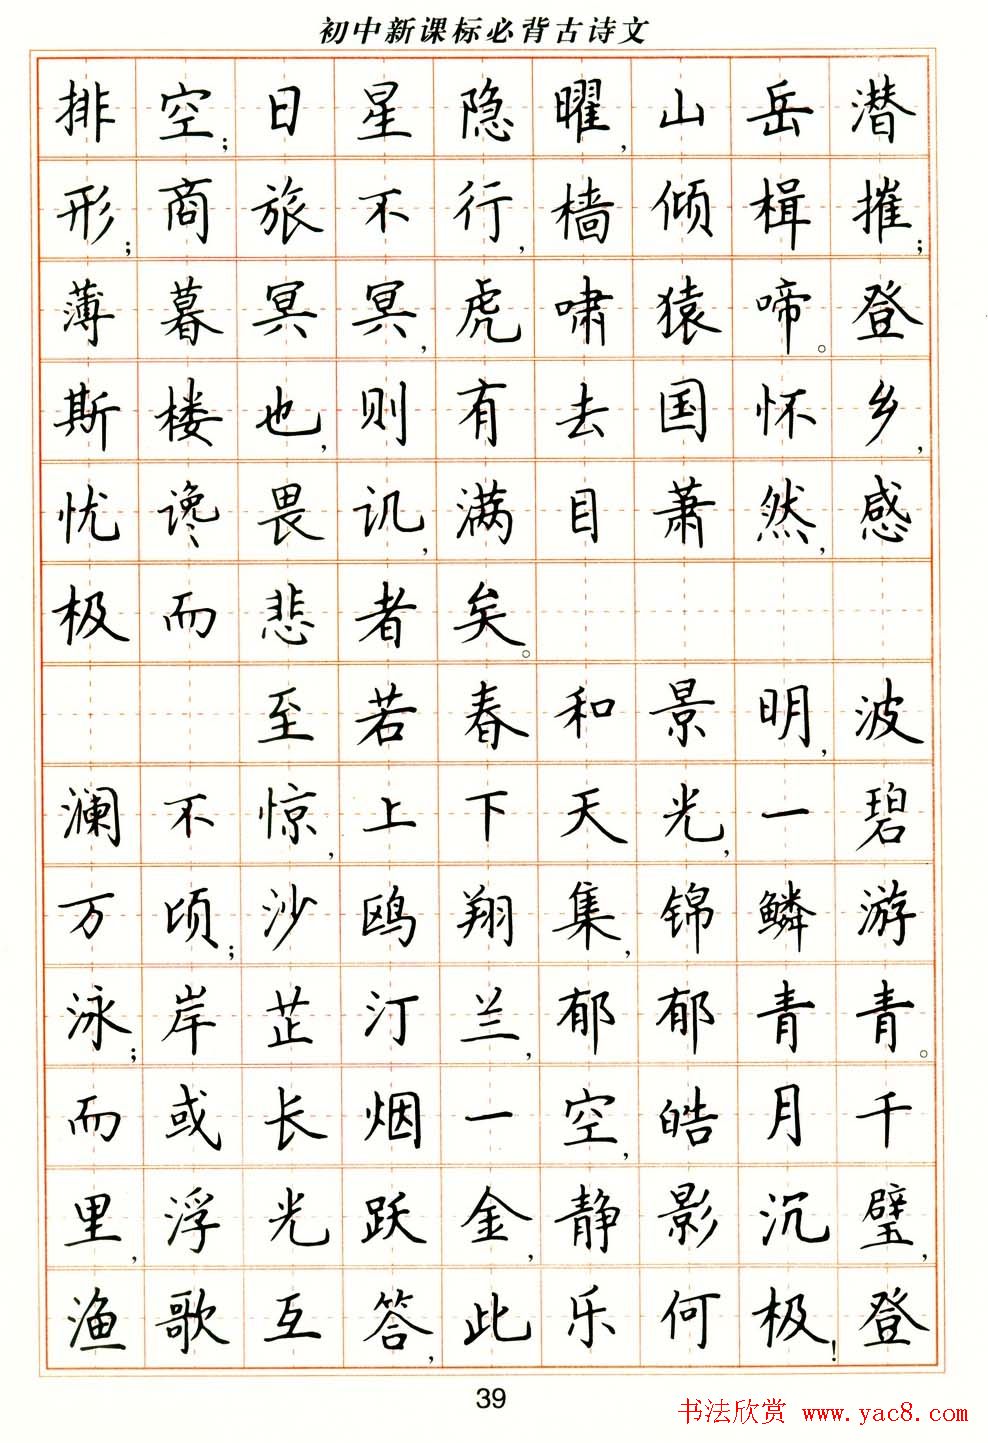 初中新课标必背古诗文
排空;日星隐曜,山岳潜
形;商旅不行,樯倾楫摧;
薄暮冥冥,虎啸猿啼。登
斯楼也,则有去国怀乡,
忧谗畏讥,满目萧然,感
极而悲者矣。
至若春和景明,波
澜不惊,上下天光,一碧
万顷;沙鸥翔集,锦鳞游
泳;岸芷汀兰,郁郁青青。
而或长烟一空,皓月千
里,浮光跃金,静影沉璧,
渔歌互答,此乐何极!登
39
书法欣赏 www.yac8.com